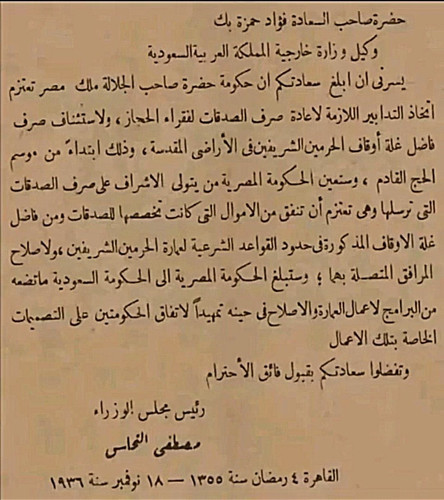 حضرة صاحب السعادة فؤاد حمزة بك
وكيل وزارة خارجية المملكة العربية السعودية
يسرنى ان ابلغ سعادتكم ان حكومة حضرة صاحب الجلالة ملك مصر تعتزم
اتخاذ التدابير اللازمة لاعادة صرف الصدقات لفقراء الحجاز، ولاستئناف صرف
فاضل غلة أوقاف الحرمين الشريفين فى الأراضى المقدسة، وذلك ابتداءً من موسم
الحج القادم، وستعين الحكومة المصرية من يتولى الاشراف على صرف الصدقات
التى ترسلها وهى تعتزم أن تنفق من الاموال التى كانت تخصصها للصدقات ومن فاضل
غلة الاوقاف المذكورة فى حدود القواعد الشرعية لعمارة الحرمين الشريفين، ولاصلاح
المرافق المتصلة بهما؛ وستبلغ الحكومة المصرية الى الحكومة السعودية ماتضعه
من البرامج لاعمال العمارة والاصلاح فى حينه تمهيداً لاتفاق الحكومتين على التصميمات
الخاصة بتلك الاعمال
وتفضلوا سعادتكم بقبول فائق الأحترام
رئيس مجلس الوزراء
مصطفى النحاس
القاهرة ٤ رمضان سنة ١٣٥٥ — ١٨ نوفمبر سنة ١٩٣٦